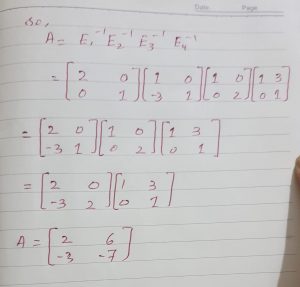 Date Page
So,
A = E₁⁻¹ E₂⁻¹ E₃⁻¹ E₄⁻¹
= [2 0; 0 1] [1 0; -3 1] [1 0; 0 2] [1 3; 0 1]
= [2 0; -3 1] [1 0; 0 2] [1 3; 0 1]
= [2 0; -3 2] [1 3; 0 1]
A = [2 6; -3 -7]